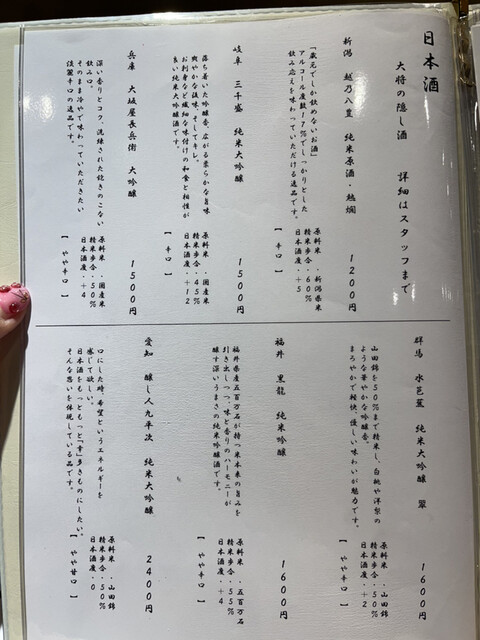 日本酒
大将の隠し酒 詳細はスタッフまで
新潟 越乃八豊 純米原酒・熱燗 1200円
「蔵元でしか飲めないお酒」
アルコール度数17%でしっかりとした
飲み応えを味わっていただける逸品です。
原料米 ・新潟県米
精米歩合・60%
日本酒度・+5
【 辛口 】
岐阜 三千盛 純米大吟醸 1500円
落ち着いた吟醸香。広がる柔らかな旨味
爽やかな後味。そしてキレ。
お刺身など繊細な味付けの和食と相性が
良い純米大吟醸酒です。
原料米 ・国産米
精米歩合・45%
日本酒度・+12
【 辛口 】
兵庫 大坂屋長兵衛 大吟醸 1500円
深い香りとコク、洗練された飽きのこない
飲み口。
そのまま冷やで味わっていただきたい
淡麗辛口の逸品です。
原料米 ・国産米
精米歩合・50%
日本酒度・+4
【 やや辛口 】
群馬 水芭蕉 純米大吟醸 翠 1600円
山田錦を50%まで精米し、白桃や洋梨の
ような華やかな吟醸香。
まろやかで軽快、優しい味わいが魅力です。
原料米 ・山田錦
精米歩合・50%
日本酒度・+2
【 やや辛口 】
福井 黒龍 純米吟醸 1600円
福井県産五百万石が持つ米本来の旨みを
引き出しつつ、味と香りのハーモニーが
醸す深いうまさの純米吟醸酒です。
原料米 ・五百万石
精米歩合・55%
日本酒度・+4
【 やや辛口 】
愛知 醸し人九平次 純米大吟醸 2400円
口にした時、希望というエネルギーを
感じて欲しい。
日本酒をもっともっと「幸」多きものにしたい。
そんな思いを体現している品です。
原料米 ・山田錦
精米歩合・50%
日本酒度・0
【 やや甘口 】